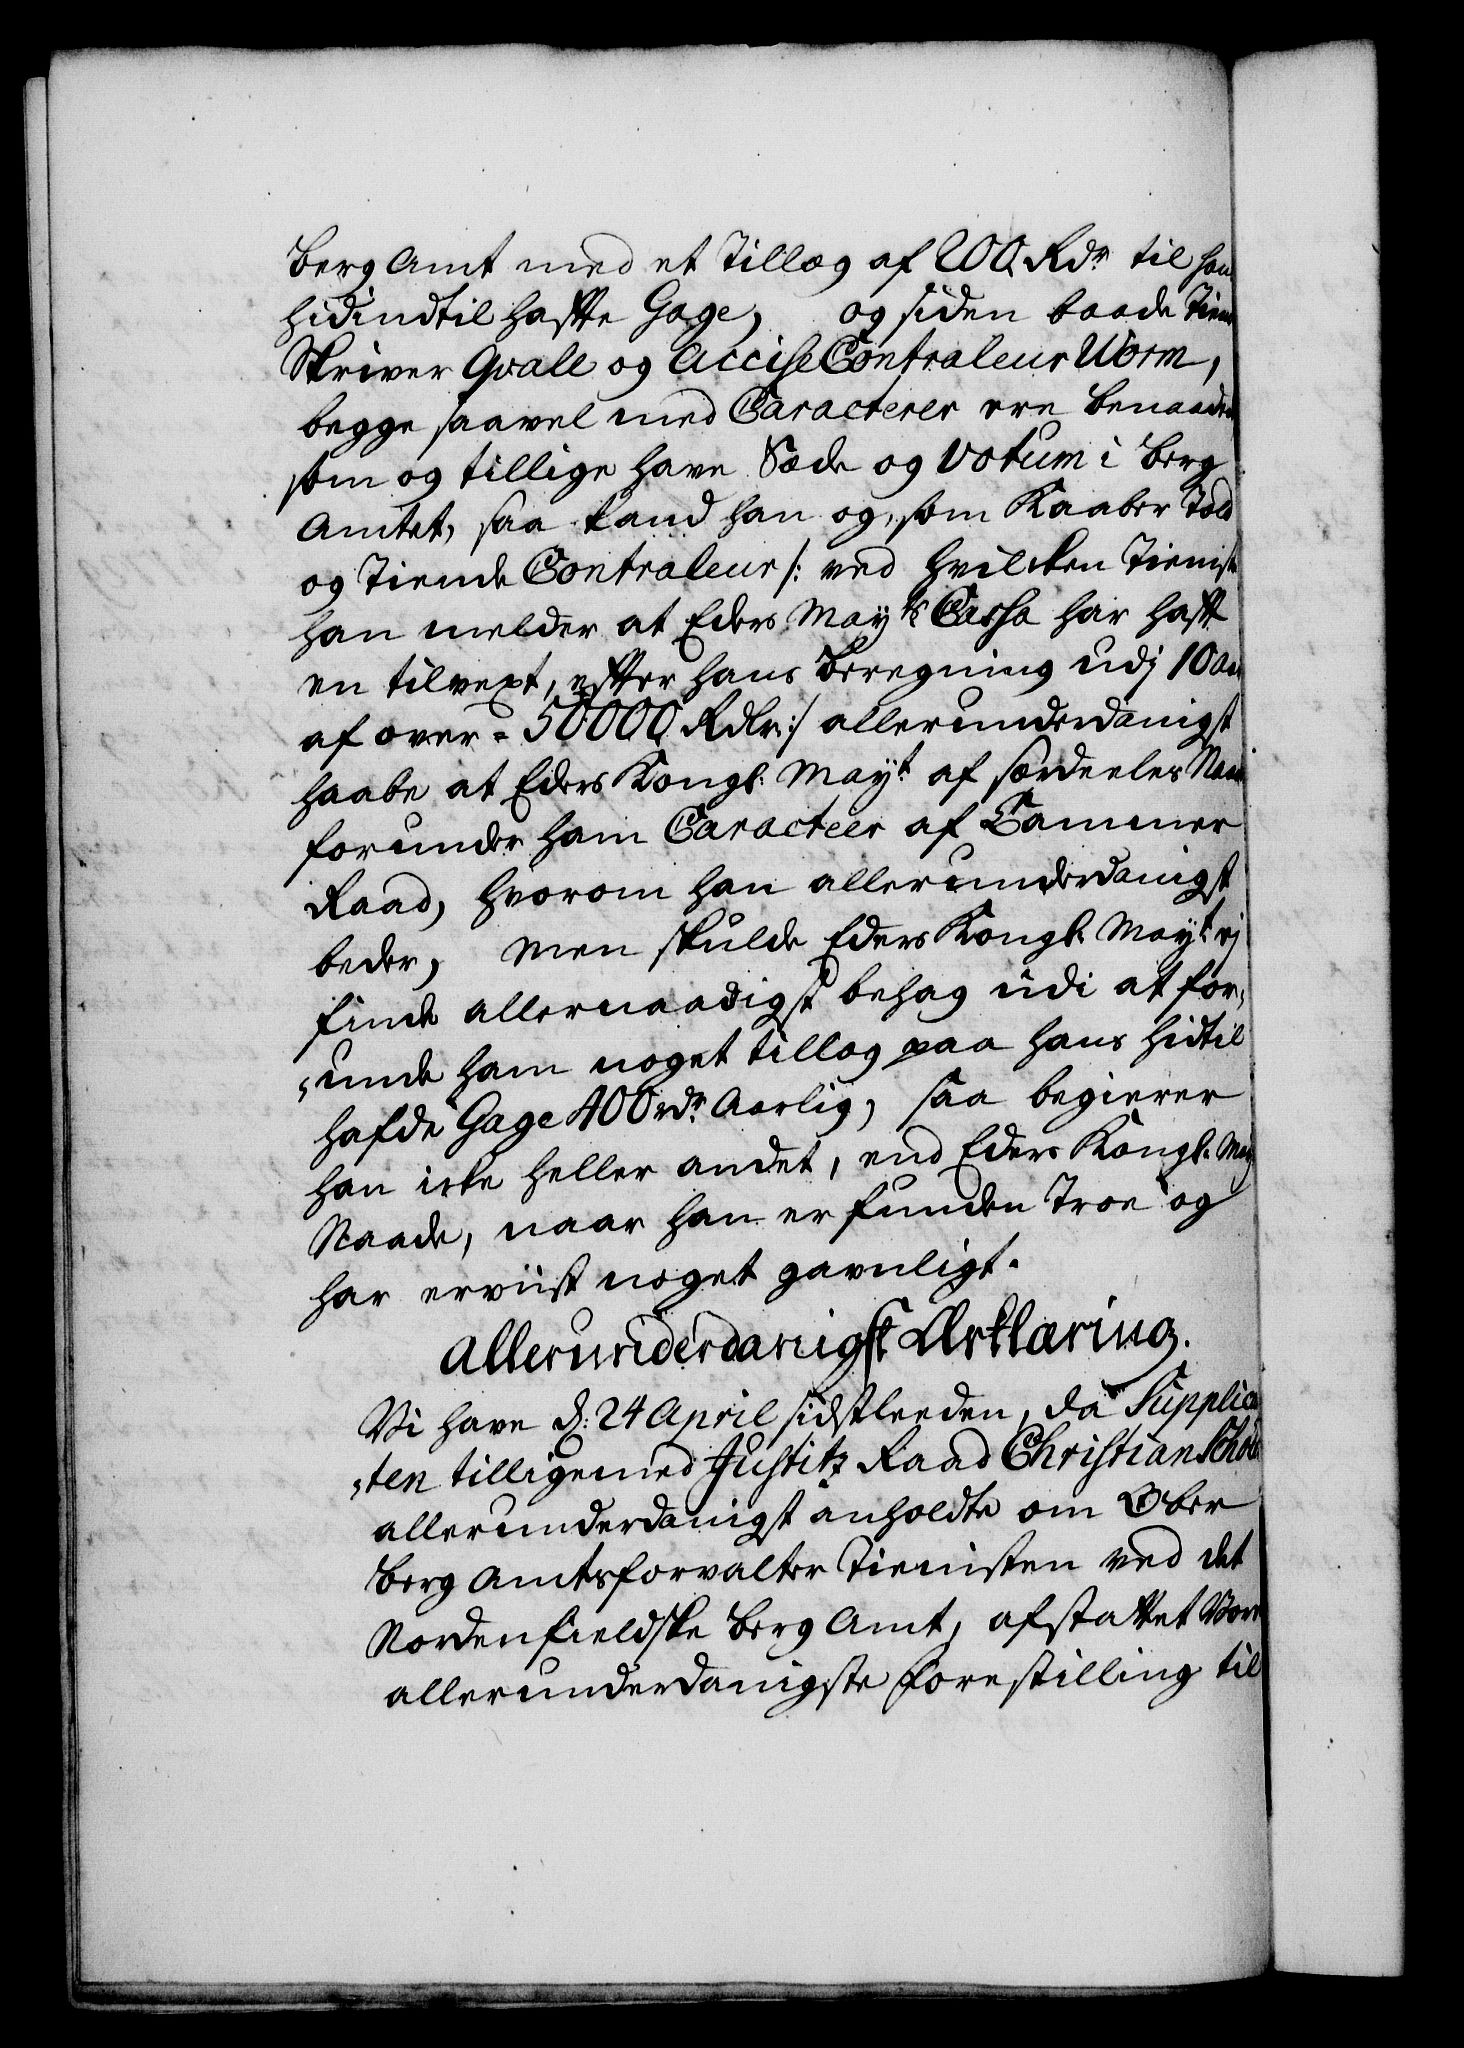 Berg Amt med et Tillæg af 200 Rdr til han
hidindtil hafte Gage, og siden baade Tiende
Skriver Qvale og Accise Contraleur Worm,
begge saavel med Caracterer ere benaadet
som og tillige have Sæde og Votum i Berg
Amtet, saa kand han og, som Kaaber Told
og Tiende Contraleur /: ved hvilcken Tieniste
han melder at Eders Mayts Cassa har haft
en tilvext, efter hans beregning udj 10 Aar
af over = 50000 Rdlr :/ allerunderdanigst
haabe at Eders Kongl: Mayt af særdeeles Naade
forunder ham Caracteer af Cammer
Raad, hvorom han allerunderdanigst
beder, Men skulde Eders Kongl: Mayt: ej
finde allernaadigst behag udi at for,,
,,unde ham noget tillæg paa hans hidtil
hafde Gage 400 rdr. Aarlig, saa begierer
han icke heller andet, end Eders Kongl: May
Naade, naar han er funden Troe og
har erviist noget gavnligt.
Allerunderdanigst Erklæring.
Vi have d: 24 April sidstleeden, da Supplican
,,ten tilligemed Justitz Raad Christian Schøller
allerunderdanigst anholdte om Ober
Berg Amtsforvalter Tienisten ved det
Nordenfieldske Berg Amt, afstattet Vores
allerunderdanigste forestilling til